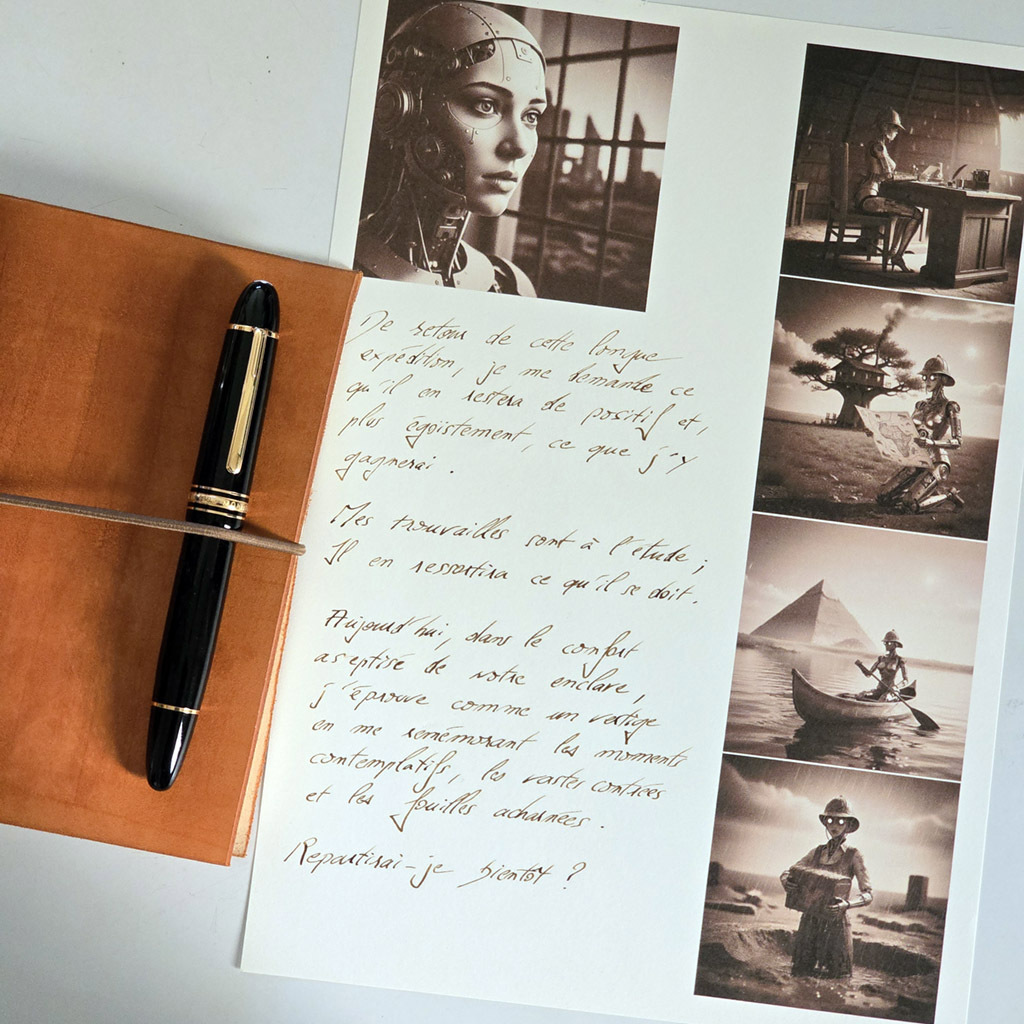 De retour de cette longue
expédition, je me demande ce
qu'il en restera de positif et,
plus égoïstement, ce que j'y
gagnerai.
Mes trouvailles sont à l'étude ;
Il en ressortira ce qu'il se doit.
Aujourd'hui, dans le confort
aseptisé de votre enclave,
j'éprouve comme un vertige
en me remémorant les moments
contemplatifs, les vastes contrées
et les fouilles acharnées.
Repartirai-je bientôt ?